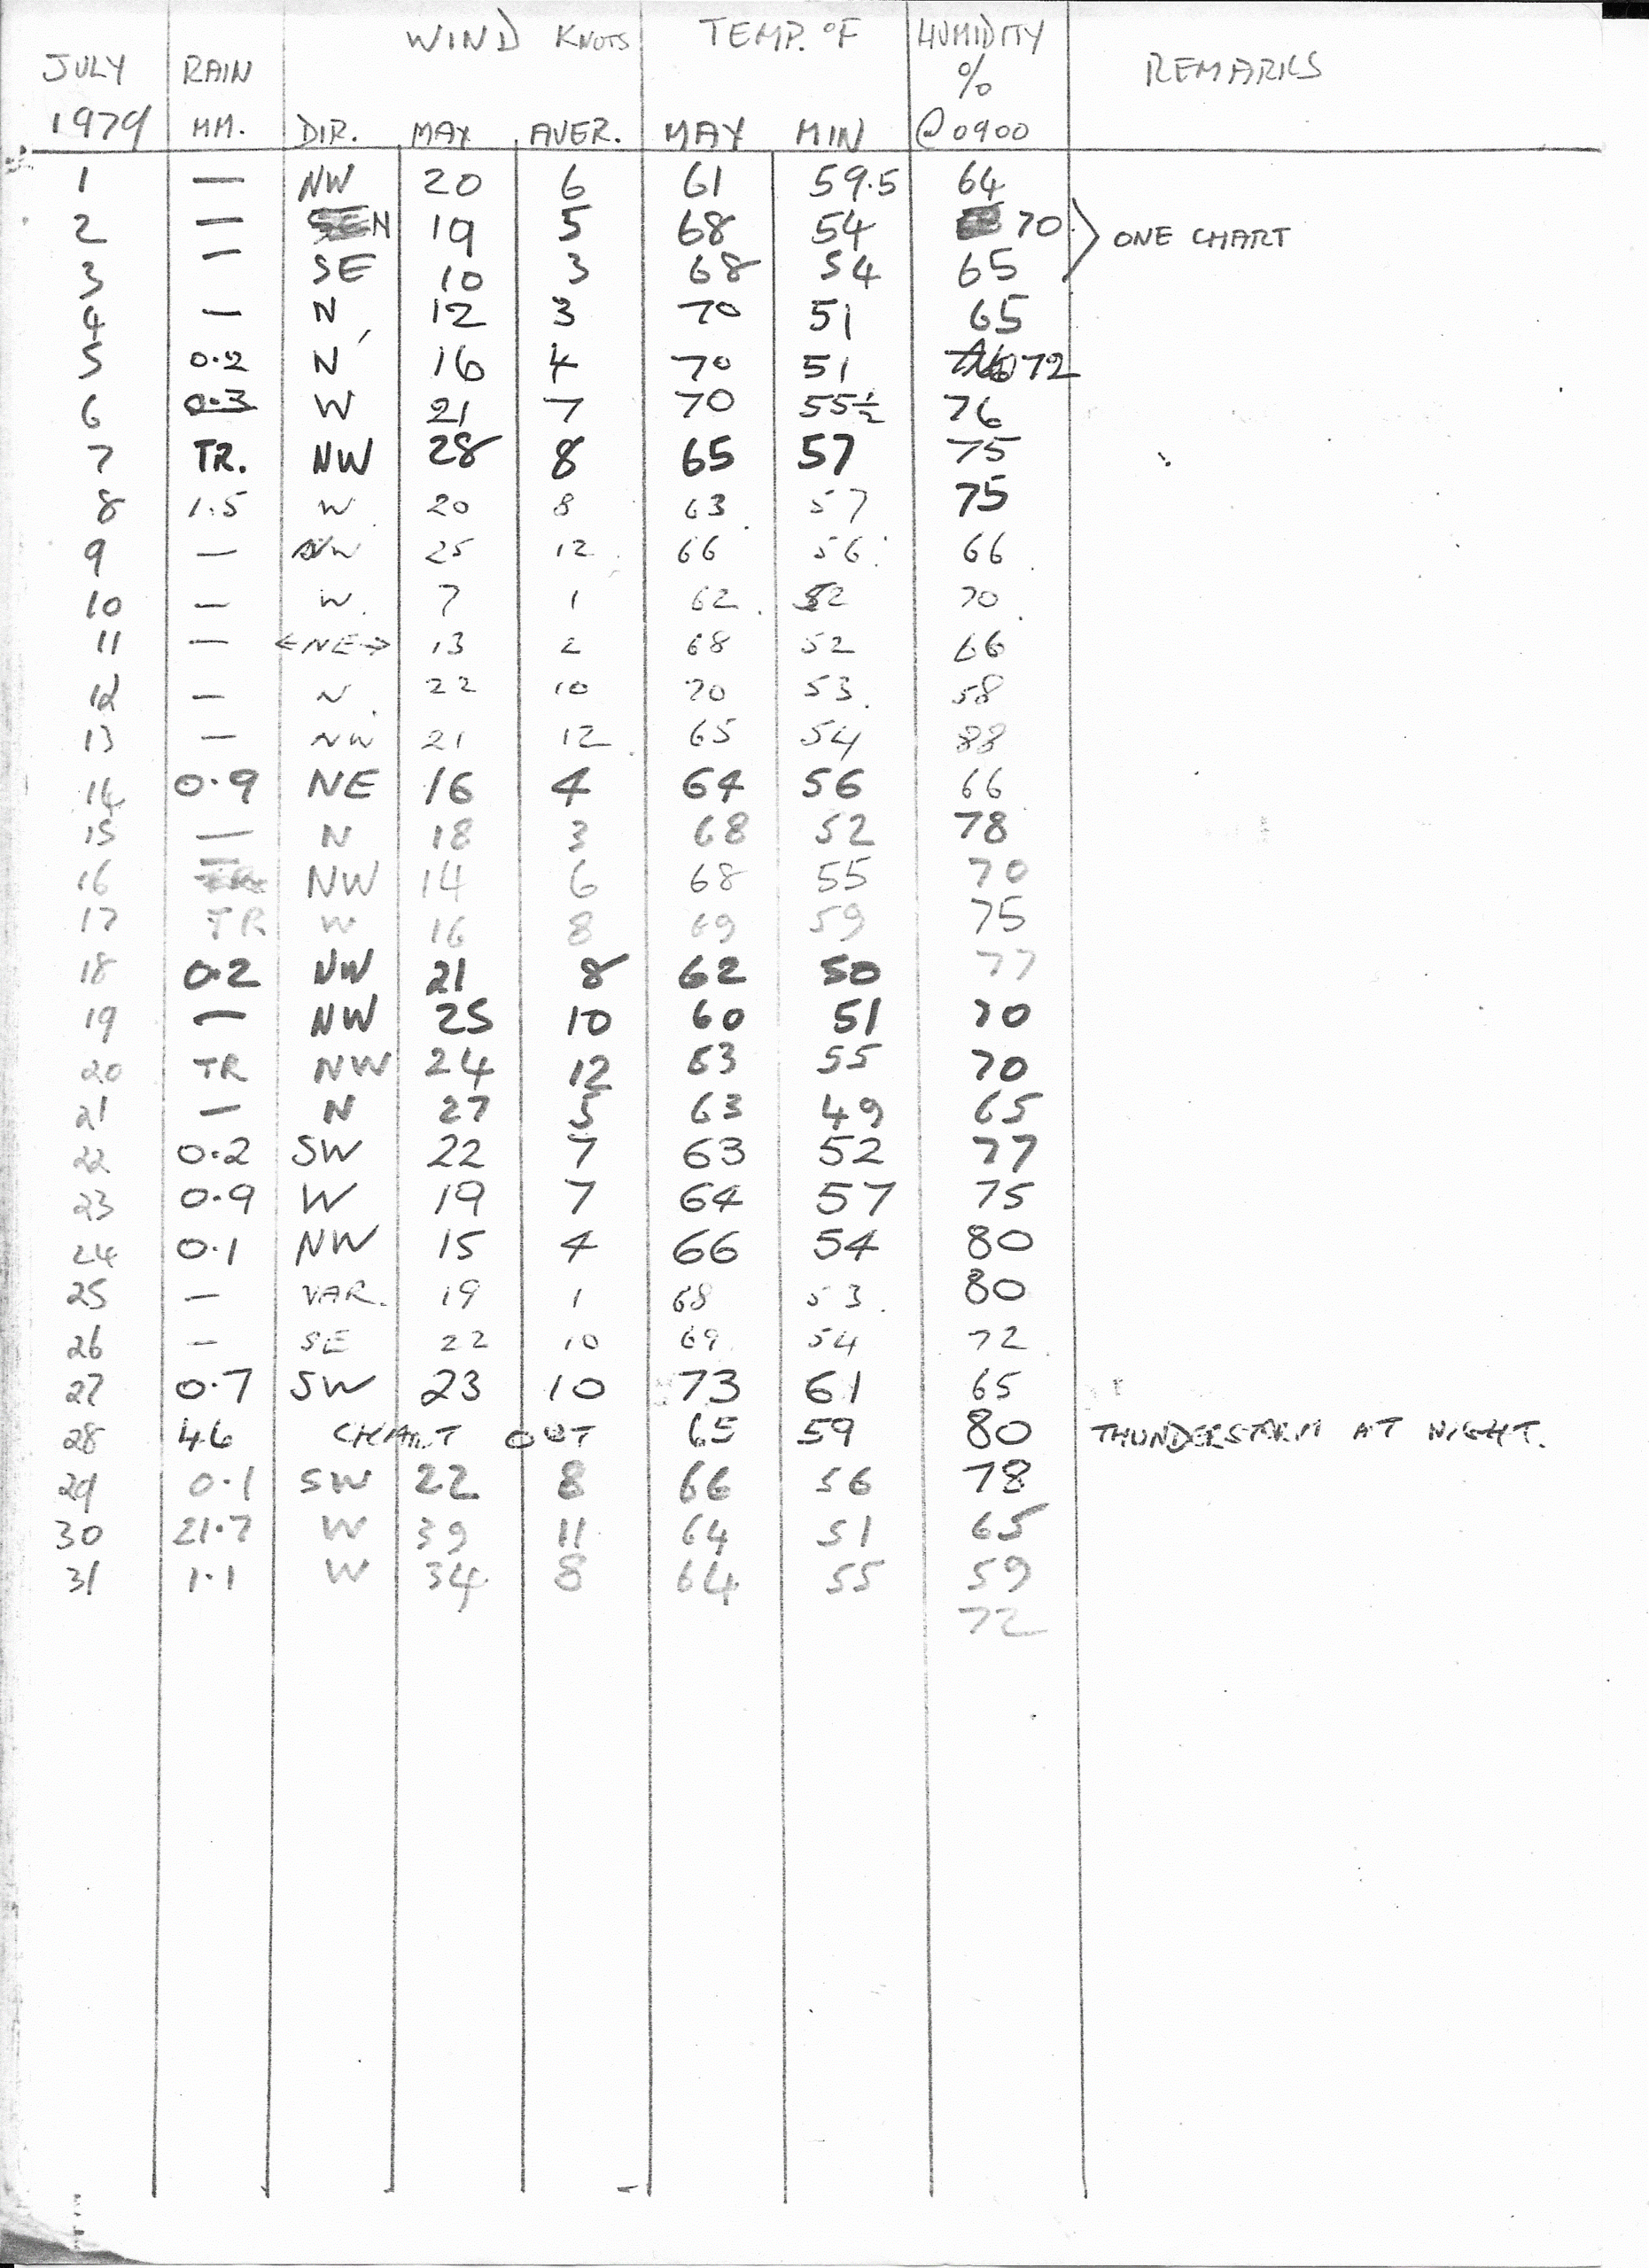 WIND KNOTS TEMP. °F HUMIDITY
JULY RAIN % REMARKS
1979 MM. DIR. MAX AVER. MAX MIN @0900
1 — NW 20 6 61 59.5 64
2 — N 19 5 68 54 70 ONE CHART
3 — SE 10 3 68 54 65
4 — N 12 3 70 51 65
5 0.2 N 16 4 70 51 72
6 0.3 W 21 7 70 55½ 76
7 TR. NW 28 8 65 57 75
8 1.5 W 20 8 63 57 75
9 — NW 25 12 66 56 66
10 — W 7 1 62 52 70
11 — <NE> 13 2 68 52 66
12 — N 22 10 70 53 58
13 — NW 21 12 65 54 88
14 0.9 NE 16 4 64 56 66
15 — N 18 3 68 52 78
16 — NW 14 6 68 55 70
17 TR W 16 8 69 59 75
18 0.2 NW 21 8 62 50 77
19 — NW 25 10 60 51 70
20 TR NW 24 12 63 55 70
21 — N 27 5 63 49 65
22 0.2 SW 22 7 63 52 77
23 0.9 W 19 7 64 57 75
24 0.1 NW 15 4 66 54 80
25 — VAR. 19 1 68 53 80
26 — SE 22 10 69 54 72
27 0.7 SW 23 10 73 61 65
28 4.6 CHART OUT 65 59 80 THUNDERSTORM AT NIGHT.
29 0.1 SW 22 8 66 56 78
30 21.7 W 39 11 64 51 65
31 1.1 W 34 8 64 55 59
72